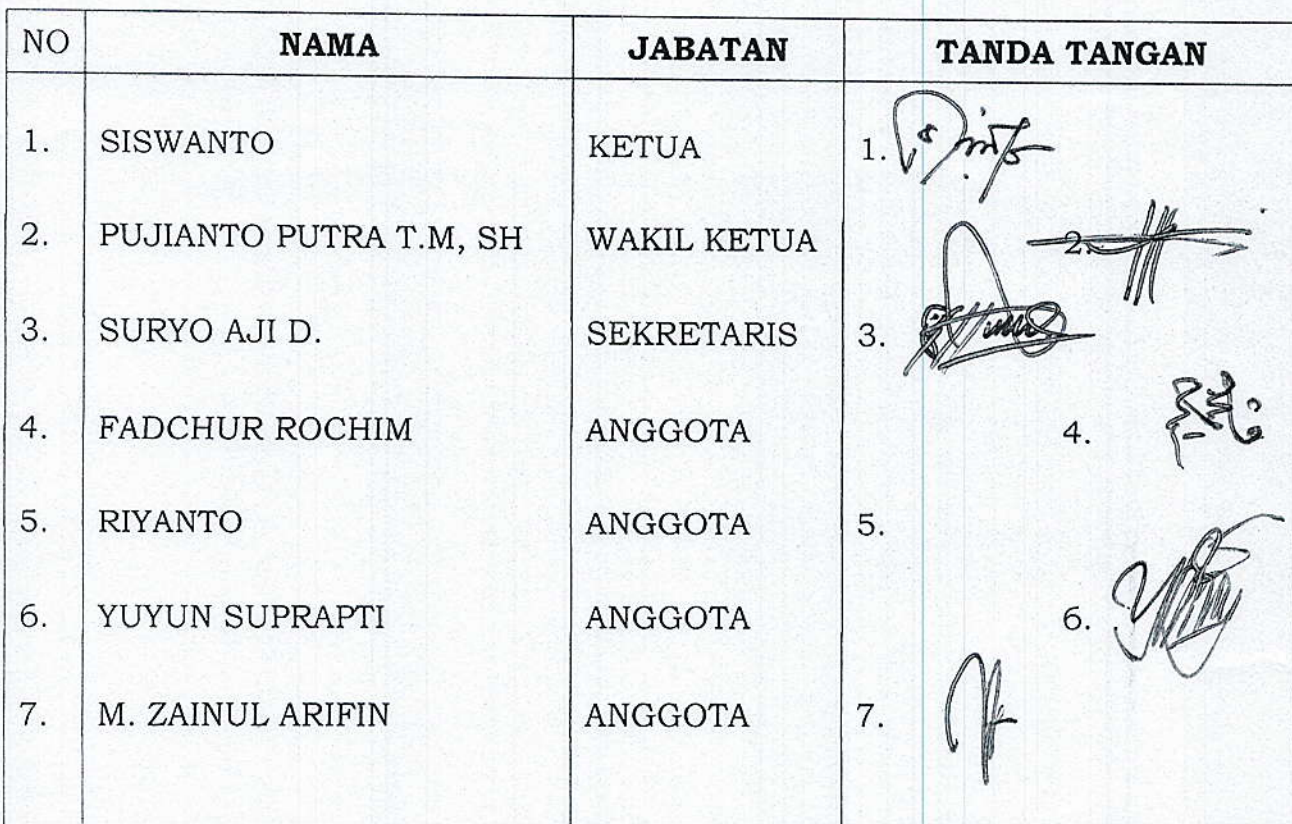 NO NAMA JABATAN TANDA TANGAN
1. SISWANTO KETUA 1.
2. PUJIANTO PUTRA T.M, SH WAKIL KETUA 2.
3. SURYO AJI D. SEKRETARIS 3.
4. FADCHUR ROCHIM ANGGOTA 4.
5. RIYANTO ANGGOTA 5.
6. YUYUN SUPRAPTI ANGGOTA 6.
7. M. ZAINUL ARIFIN ANGGOTA 7.